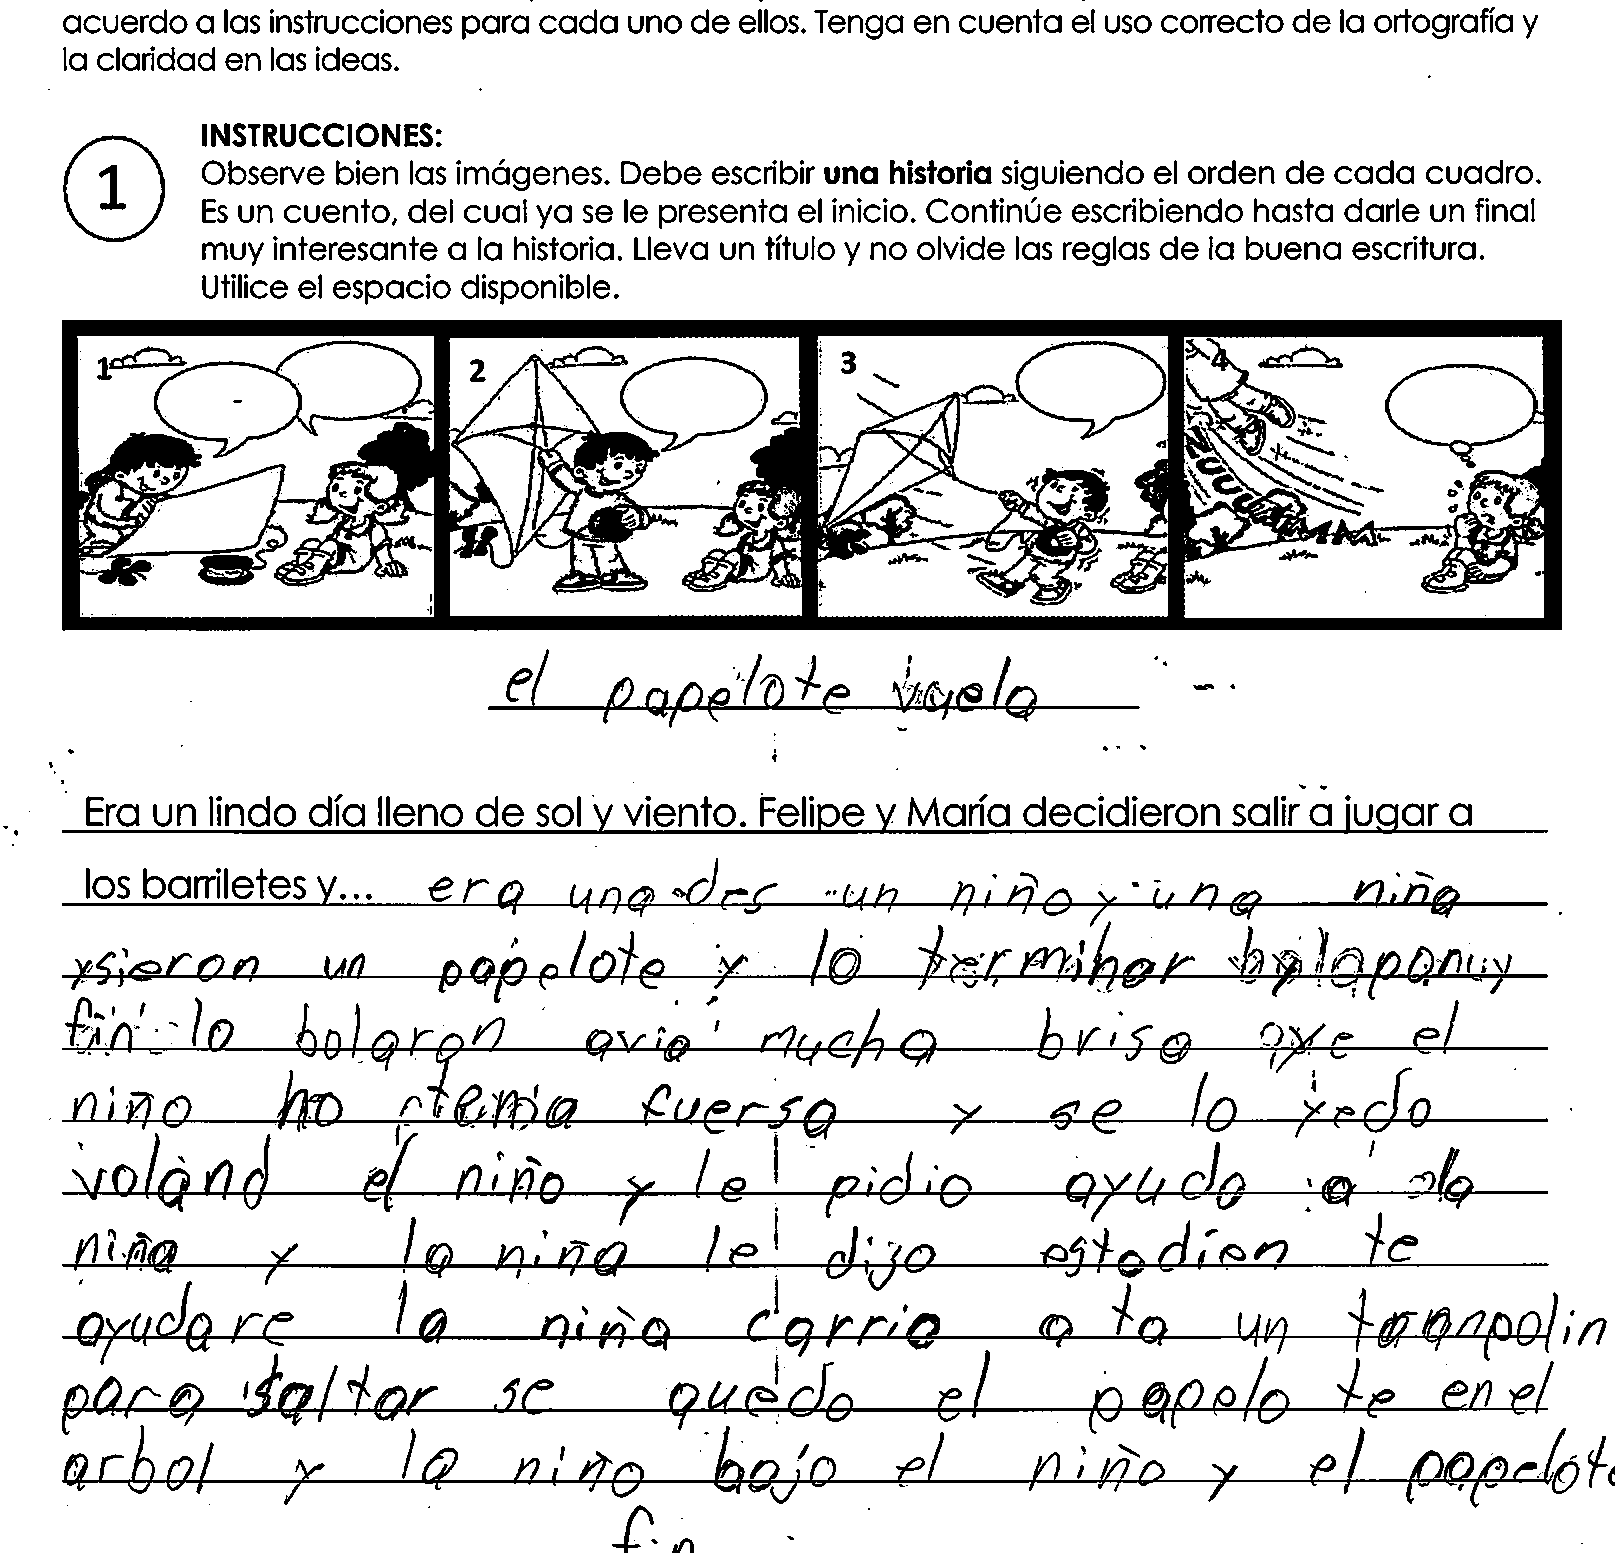 acuerdo a las instrucciones para cada uno de ellos. Tenga en cuenta el uso correcto de la ortografía y
la claridad en las ideas.
1
INSTRUCCIONES:
Observe bien las imágenes. Debe escribir una historia siguiendo el orden de cada cuadro.
Es un cuento, del cual ya se le presenta el inicio. Continúe escribiendo hasta darle un final
muy interesante a la historia. Lleva un título y no olvide las reglas de la buena escritura.
Utilice el espacio disponible.
1 2 3 4
el papelote vuela
Era un lindo día lleno de sol y viento. Felipe y María decidieron salir a jugar a
los barriletes y... era una des un niño y una niña
ysieron un papelote y lo terminor
fin lo bolaron avia mucha brisa que el
niño no tenia fuersa y se lo yedo
voland el niño y le pidio ayuda a la
niña y la niña le dijo estadien te
ayudare la niña carrio a ta un tranpolin
para saltar se quedo el papelo te en el
arbol y la niño bajo el niño y el papelote
fin